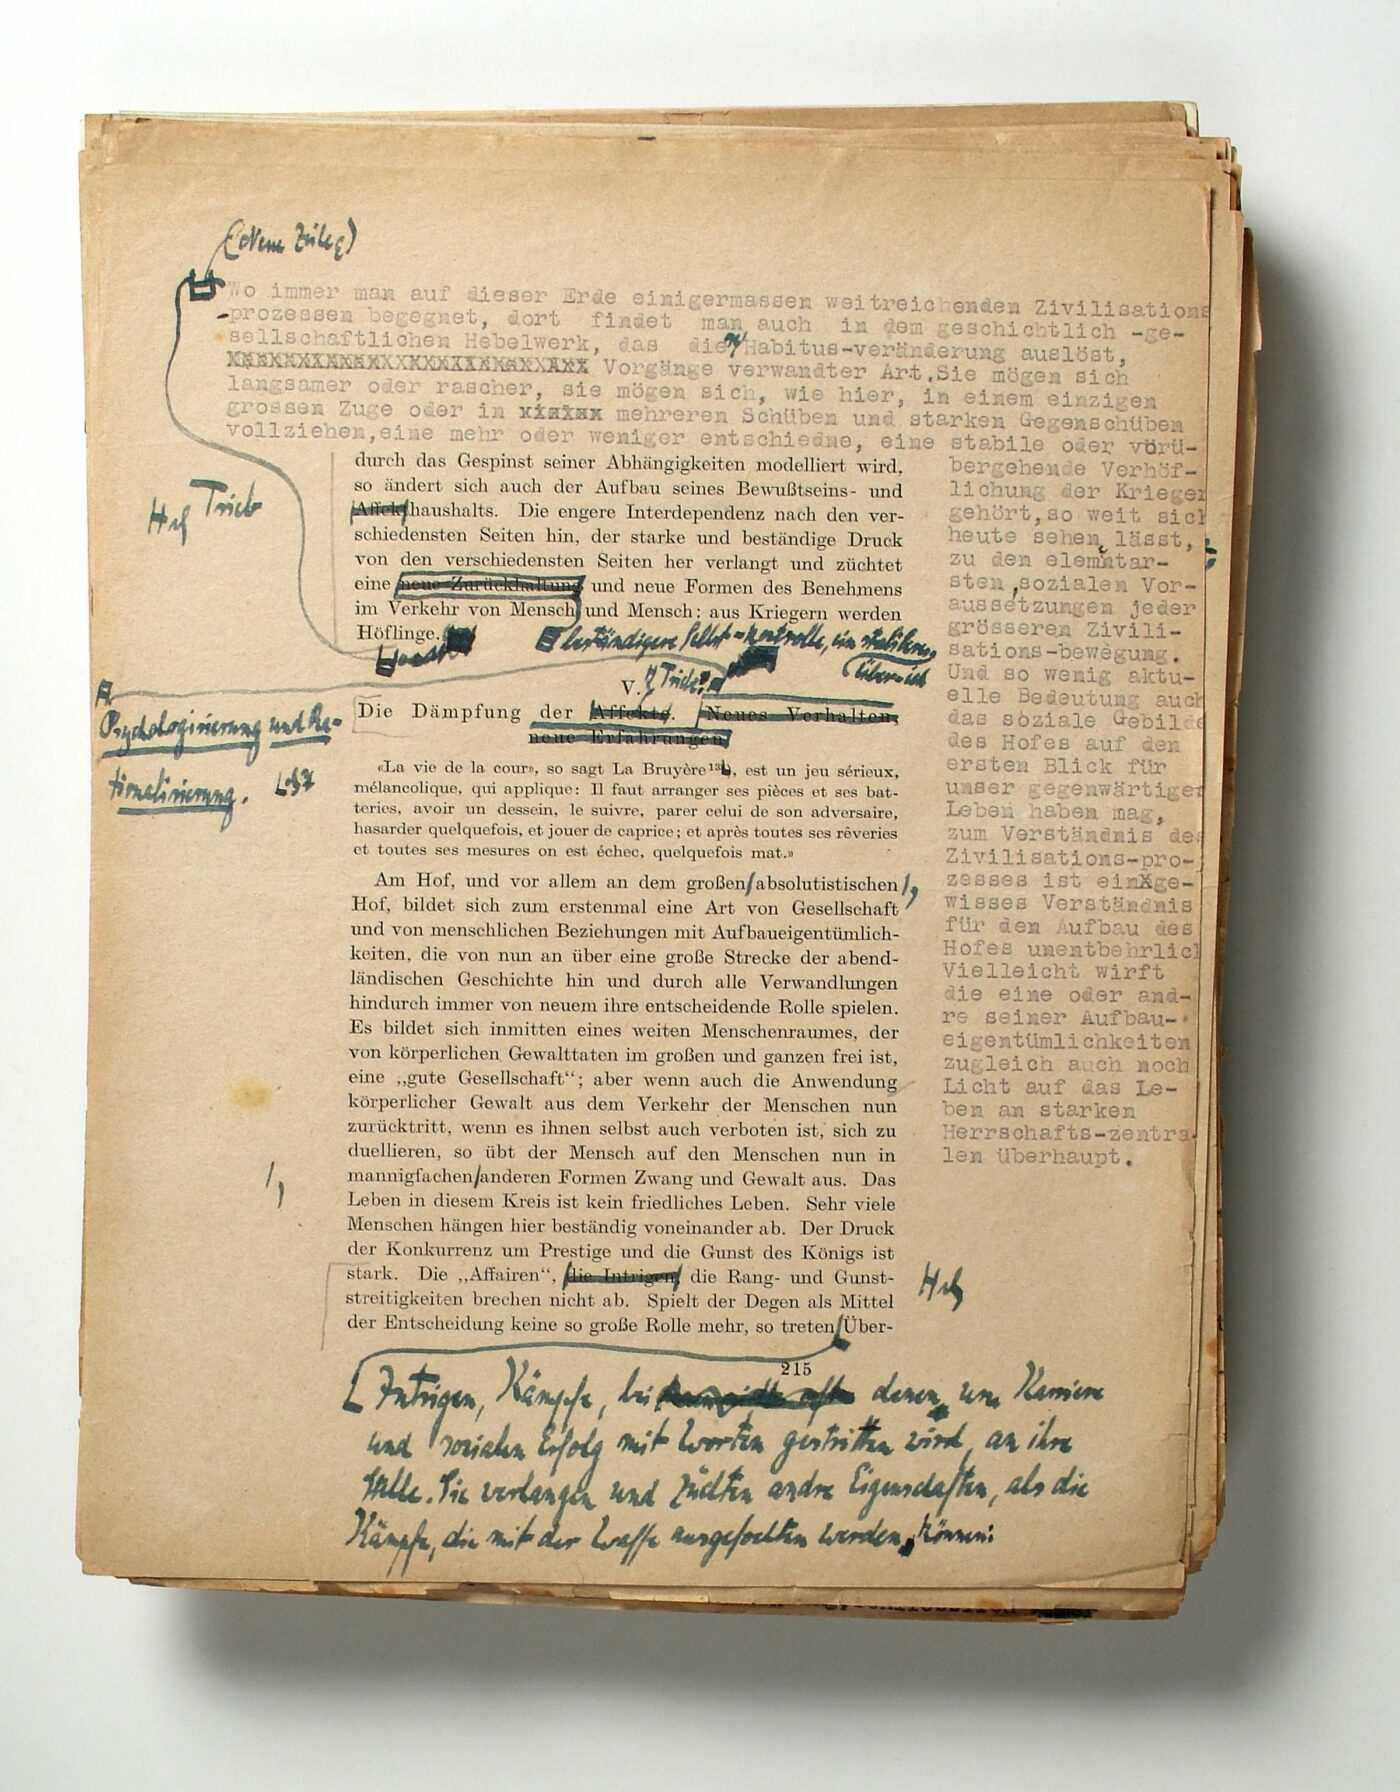 (Neue Zeile)
Wo immer man auf dieser Erde einigermassen weitreichenden Zivilisations
-prozessen begegnet, dort findet man auch in dem geschichtlich -ge-
sellschaftlichen Hebelwerk, das die Habitus-veränderung auslöst,
Vorgänge verwandter Art.Sie mögen sich
langsamer oder rascher, sie mögen sich, wie hier, in einem einzigen
grossen Zuge oder in mehreren Schüben und starken Gegenschüben
vollziehen,eine mehr oder weniger entschiedne, eine stabile oder vorü-
bergehende Verhöf-
lichung der Krieger
gehört,so weit sich
heute sehen lässt,
zu den elementar-
sten sozialen Vor-
aussetzungen jeder
grösseren Zivili-
sations-bewegung.
Und so wenig aktu-
elle Bedeutung auch
das soziale Gebilde
des Hofes auf den
ersten Blick für
unser gegenwärtiges
Leben haben mag,
zum Verständnis des
Zivilisations-pro-
zesses ist ein ge-
wisses Verständnis
für den Aufbau des
Hofes unentbehrlich
Vielleicht wirft
die eine oder and-
re seiner Aufbau-
eigentümlichkeiten
zugleich auch noch
Licht auf das Le-
ben an starken
Herrschafts-zentra-
len überhaupt.
durch das Gespinst seiner Abhängigkeiten modelliert wird,
so ändert sich auch der Aufbau seines Bewußtseins- und
Trieb
Affekthaushalts. Die engere Interdependenz nach den ver-
schiedensten Seiten hin, der starke und beständige Druck
von den verschiedensten Seiten her verlangt und züchtet
eine neue Zurückhaltung und neue Formen des Benehmens
im Verkehr von Mensch und Mensch: aus Kriegern werden
Höflinge.
beständigere Selbst-kontrolle, ein stabileres
Über-ich
V. Triebe
Die Dämpfung der Affekte. Neues Verhalten,
neue Erfahrungen
Psychologisierung und Ra-
tionalisierung.
«La vie de la cour», so sagt La Bruyère, est un jeu sérieux,
mélancolique, qui applique: Il faut arranger ses pièces et ses bat-
teries, avoir un dessein, le suivre, parer celui de son adversaire,
hasarder quelquefois, et jouer de caprice; et après toutes ses rêveries
et toutes ses mesures on est échec, quelquefois mat.»
Am Hof, und vor allem an dem großen absolutistischen
Hof, bildet sich zum erstenmal eine Art von Gesellschaft
und von menschlichen Beziehungen mit Aufbaueigentümlich-
keiten, die von nun an über eine große Strecke der abend-
ländischen Geschichte hin und durch alle Verwandlungen
hindurch immer von neuem ihre entscheidende Rolle spielen.
Es bildet sich inmitten eines weiten Menschenraumes, der
von körperlichen Gewalttaten im großen und ganzen frei ist,
eine „gute Gesellschaft“; aber wenn auch die Anwendung
körperlicher Gewalt aus dem Verkehr der Menschen nun
zurücktritt, wenn es ihnen selbst auch verboten ist, sich zu
duellieren, so übt der Mensch auf den Menschen nun in
mannigfachen anderen Formen Zwang und Gewalt aus. Das
Leben in diesem Kreis ist kein friedliches Leben. Sehr viele
Menschen hängen hier beständig voneinander ab. Der Druck
der Konkurrenz um Prestige und die Gunst des Königs ist
stark. Die „Affairen“, die Intrigen, die Rang- und Gunst-
streitigkeiten brechen nicht ab. Spielt der Degen als Mittel
der Entscheidung keine so große Rolle mehr, so treten Über-
215
Intrigen, Kämpfe, bei denen um Karriere
und sozialen Erfolg mit Worten gestritten wird, an ihre
Stelle. Sie verlangen und züchten andre Eigenschaften, als die
Kämpfe, die mit der Waffe ausgefochten werden können: